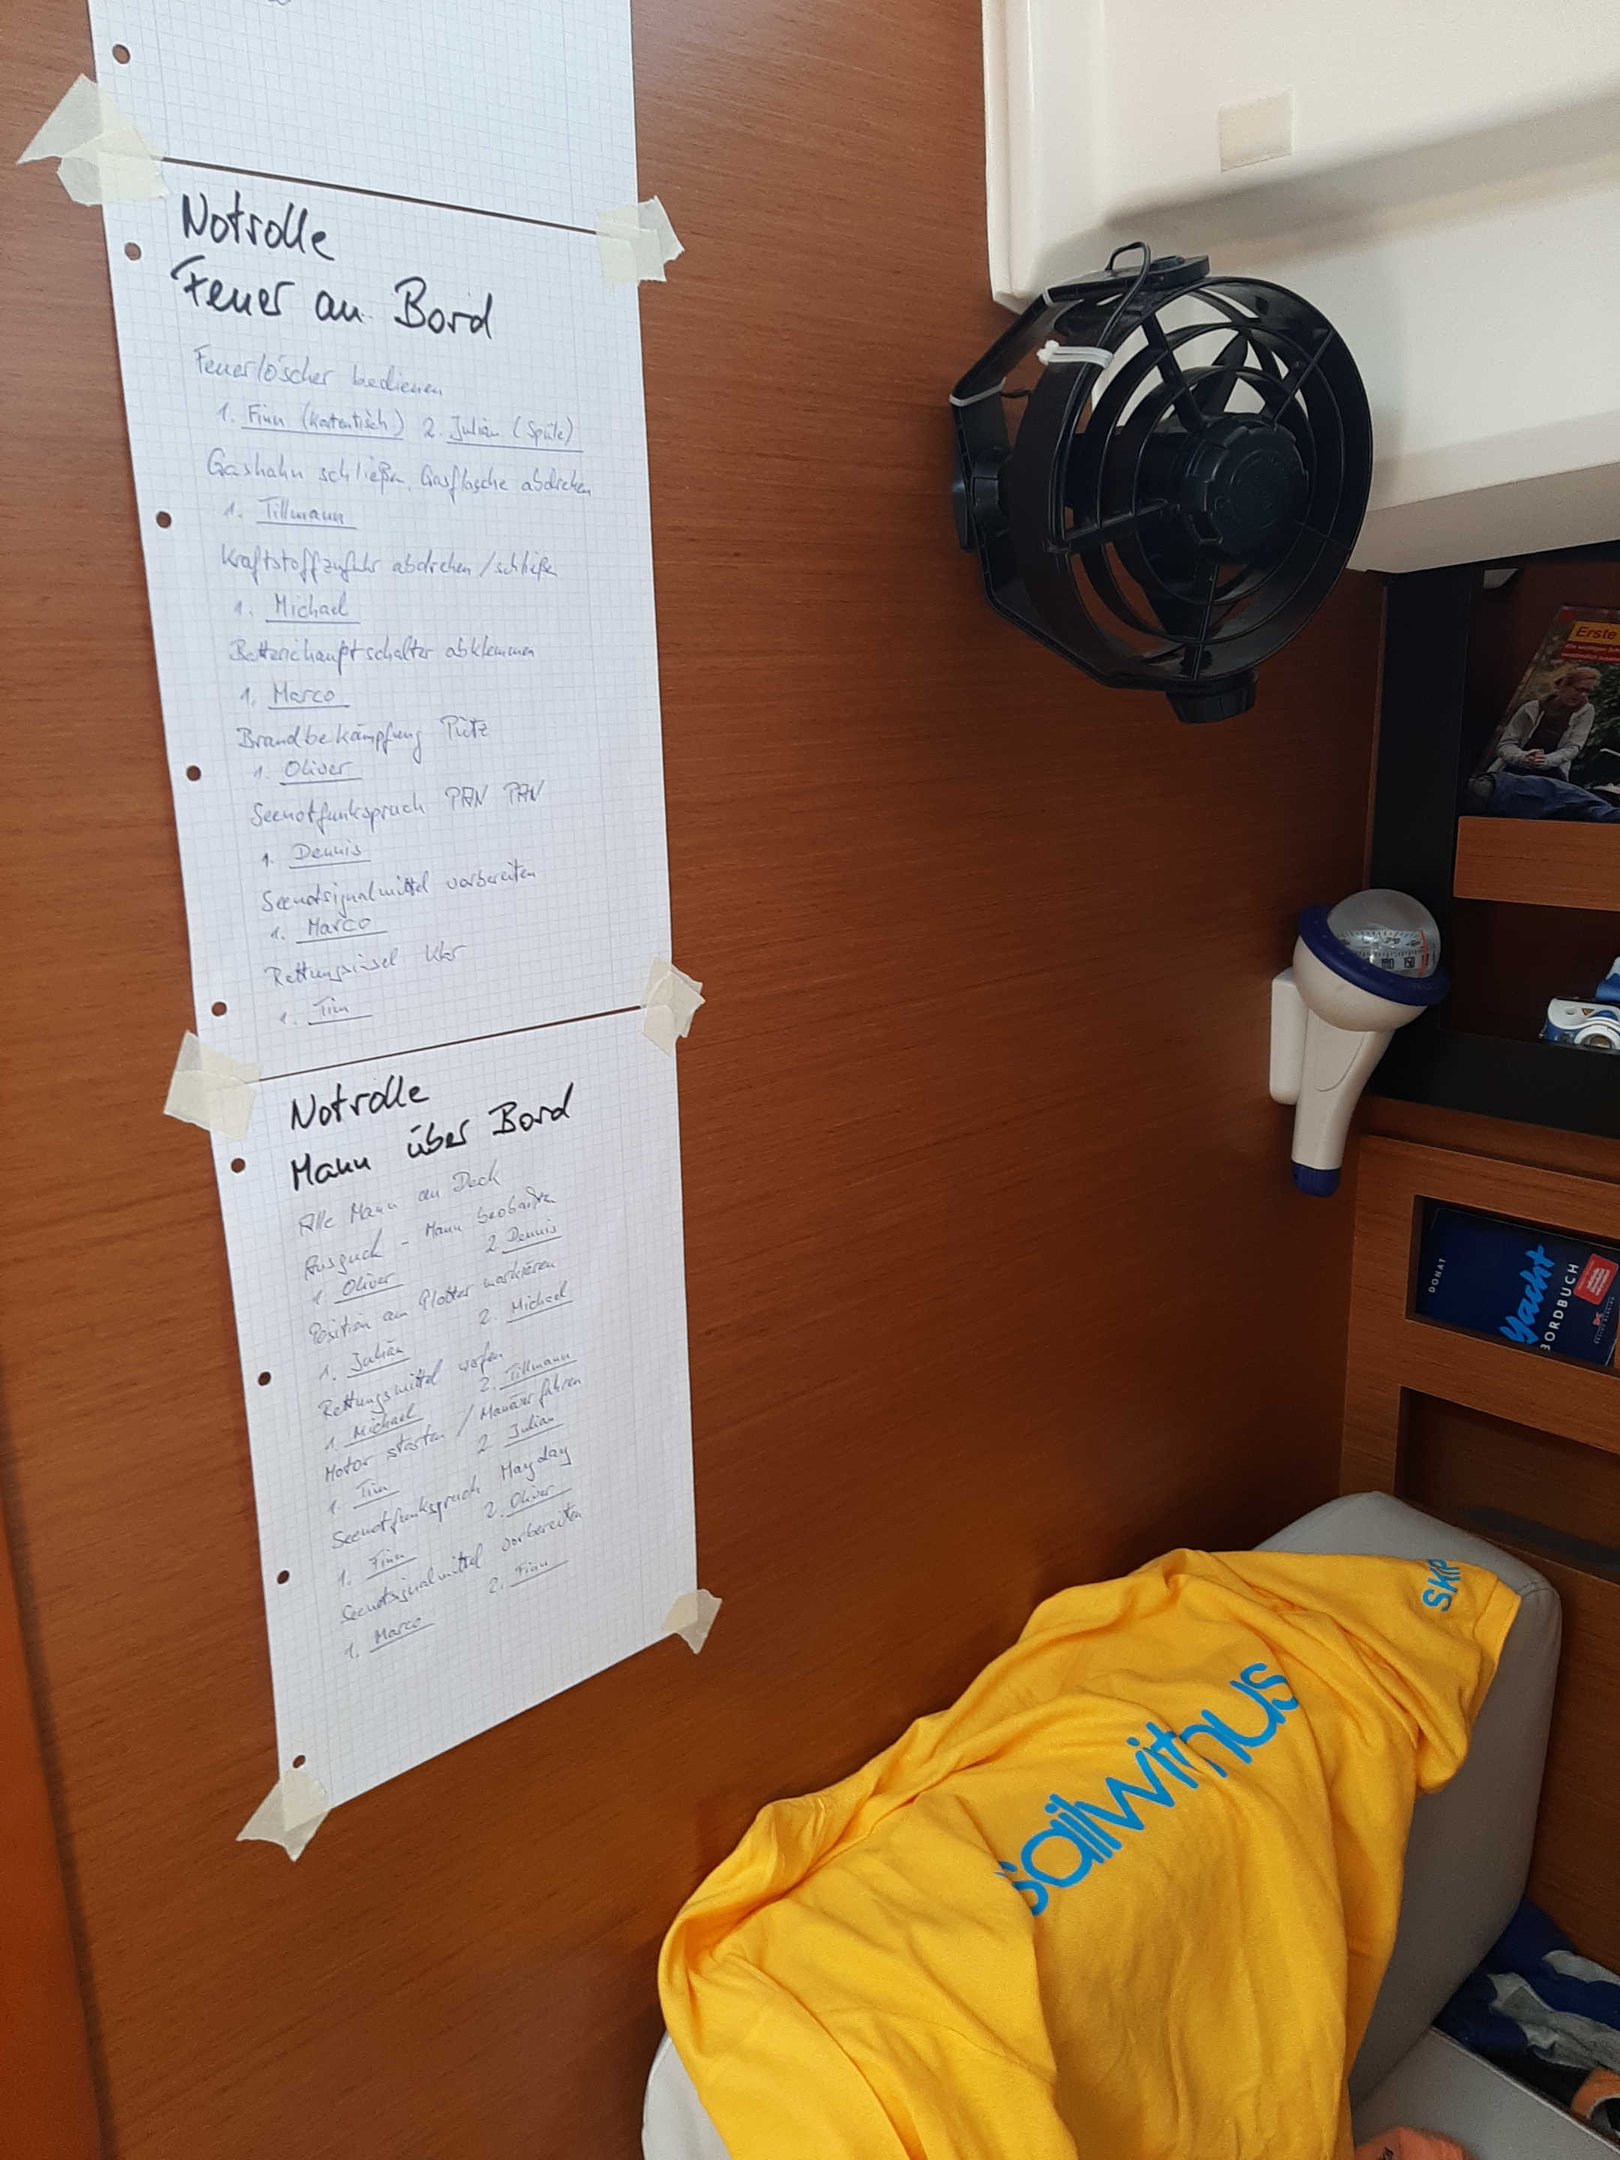 Notrolle
Feuer an Bord
Feuerlöscher bedienen
1. Finn (Kartentisch) 2. Julian (Spüle)
Gashahn schließen, Gasflasche abdrehen
1. Tillmann
Kraftstoffzufuhr abdrehen/schließen
1. Michael
Batteriehauptschalter abklemmen
1. Marco
Brandbekämpfung Pütz
1. Oliver
Seenotfunkspruch PAN PAN
1. Dennis
Seenotsignalmittel vorbereiten
1. Marco
Rettungsinsel klar
1. Tim
Notrolle
Mann über Bord
Alle Mann an Deck
Ausguck - Mann beobachten
1. Oliver 2. Dennis
Position am Plotter markieren
1. Julian 2. Michael
Rettungsmittel werfen
1. Michael 2. Tillmann
Motor starten / Manöver fahren
1. Tim 2. Julian
Seenotfunkspruch Mayday
1. Finn 2. Oliver
Seenotsignalmittel vorbereiten
1. Marco 2. Finn
Erste
DONAT
Yacht
BORDBUCH
SKIP
sailwithus